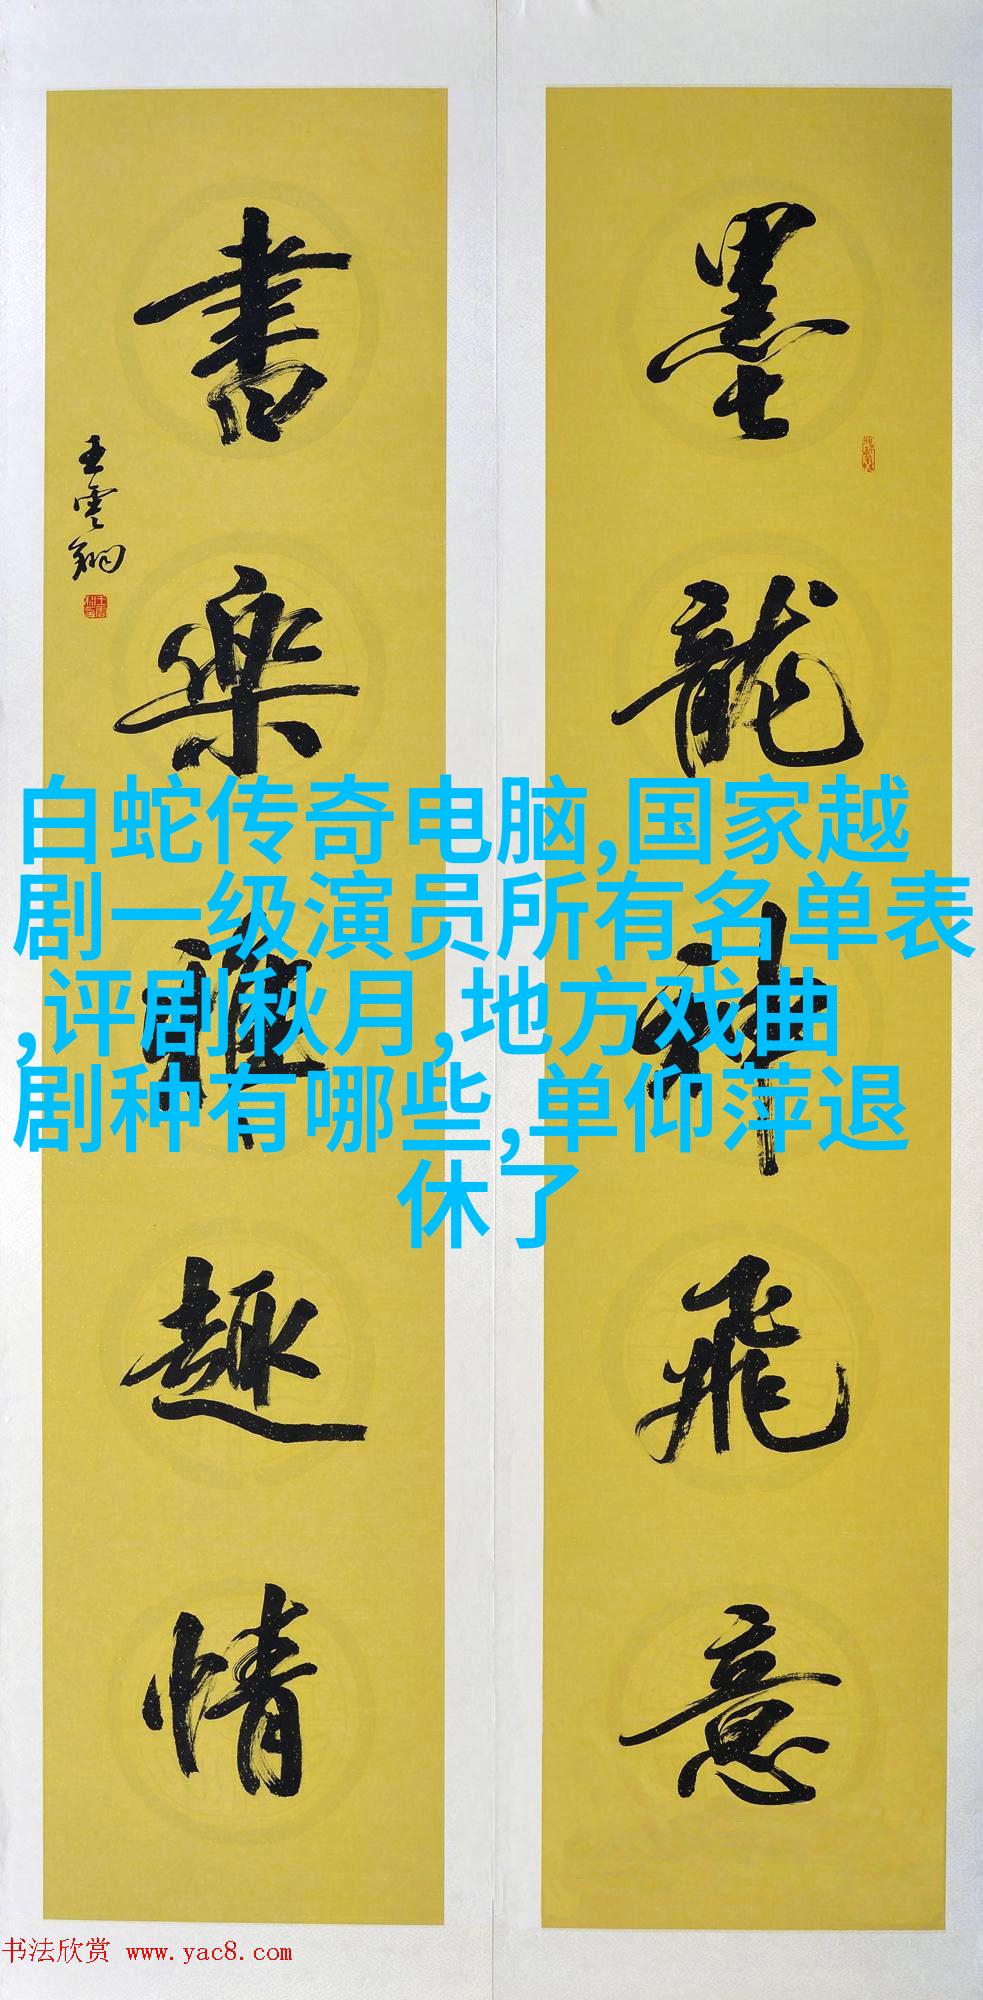 墨龍神飛意
書楽雅趣情
王雲
白蛇传奇电脑,国家越
剧一级演员所有名单表
,评剧秋月,地方戏曲
剧种有哪些,单仰萍退
休了
书法欣赏 www.yac8.com